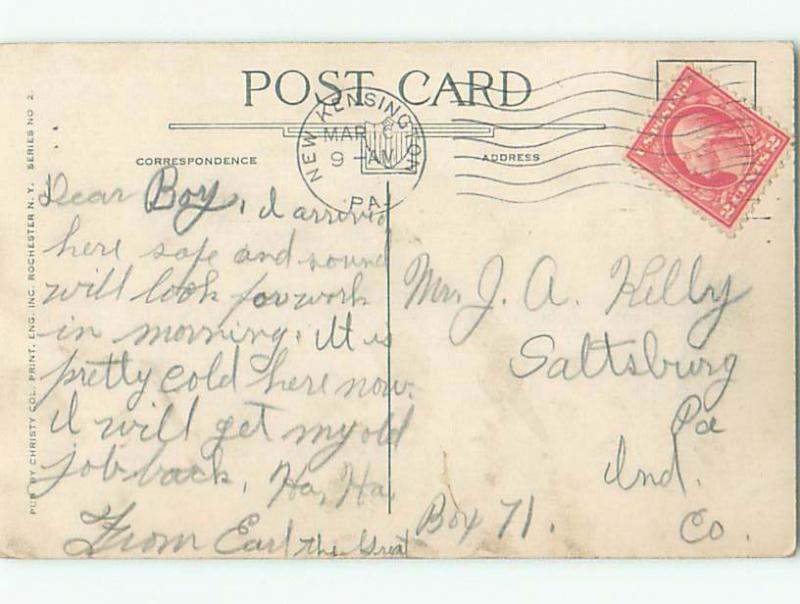 POST CARD
NEW KENSINGTON
MAR 6
9 - AM
PA.
U.S. POSTAGE
2 CENTS 2
CORRESPONDENCE
ADDRESS
PUB. BY CHRISTY COL. PRINT. ENG. INC. ROCHESTER N. Y. SERIES NO 2.
Dear Boy, I arrived
here safe and sound
will look for work
in morning. It is
pretty cold here now.
I will get my old
job back, Ha, Ha,
From Earl the Great
Mr. J. A. Kelly
Saltsburg
Pa
Ind.
Co.
Box 71.